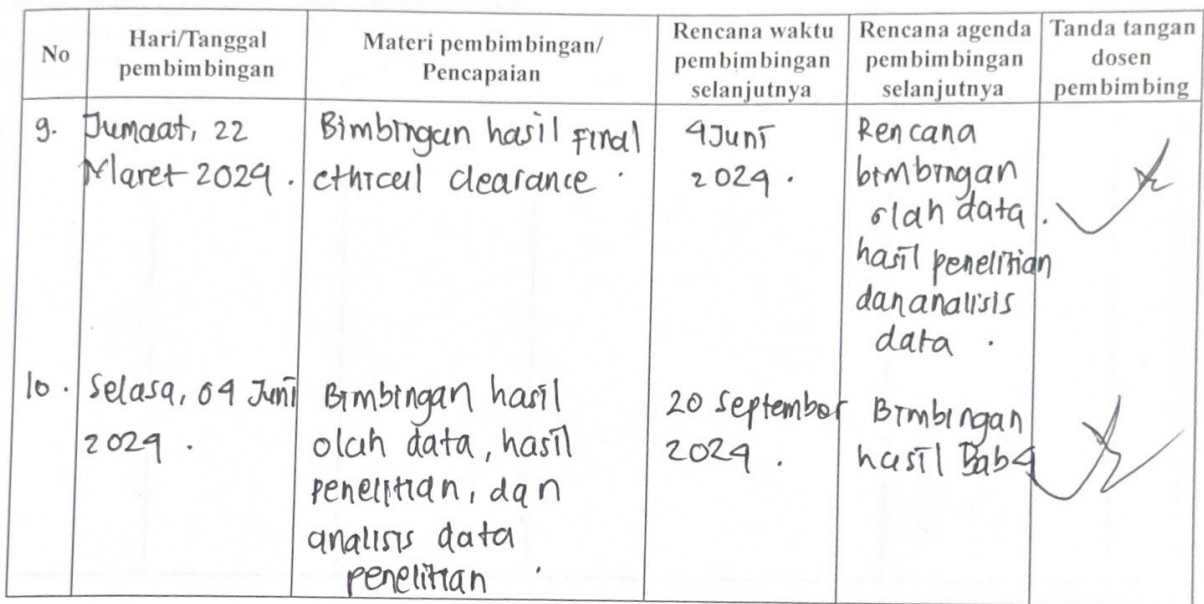 No
Hari/Tanggal
pembimbingan
Materi pembimbingan/
Pencapaian
Rencana waktu
pembimbingan
selanjutnya
Rencana agenda
pembimbingan
selanjutnya
Tanda tangan
dosen
pembimbing
9.
Jumaat, 22
Maret 2024.
Bimbingan hasil Final
ethical clearance.
4 Juni
2024.
Rencana
bimbingan
olah data.
hasil penelitian
dan analisis
data.
10.
Selasa, 04 Juni
2024.
Bimbingan hasil
olah data, hasil
penelitian, dan
analisis data
penelitian.
20 September
2024.
Bimbingan
hasil Bab 4